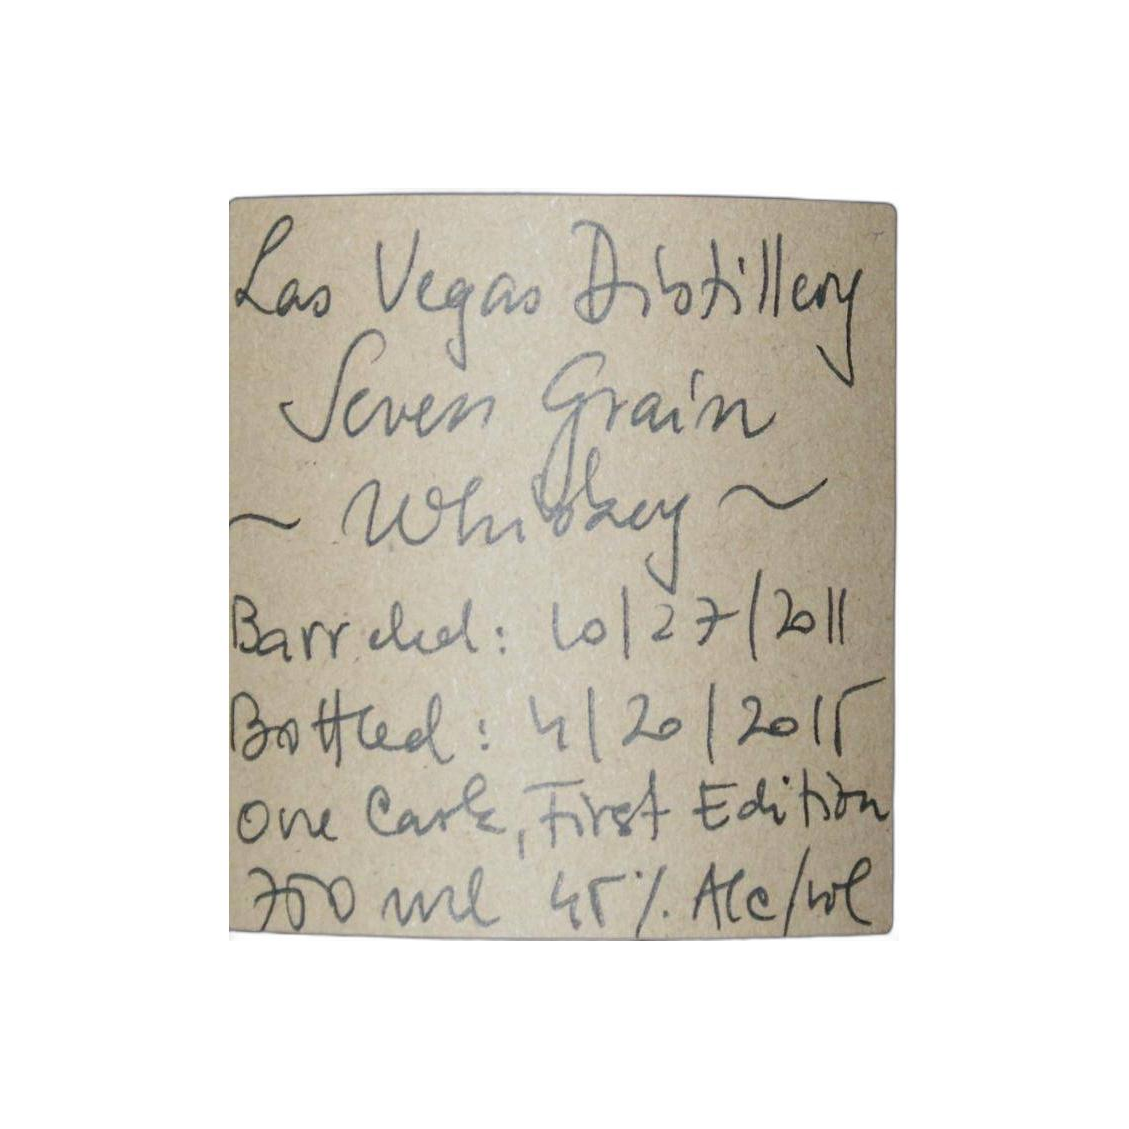 Las Vegas Distillery
Seven Grain
~ Whiskey ~
Barreled: 10/27/2011
Bottled: 4/20/2015
One Cask, First Edition
750 ml 45% Alc/vol